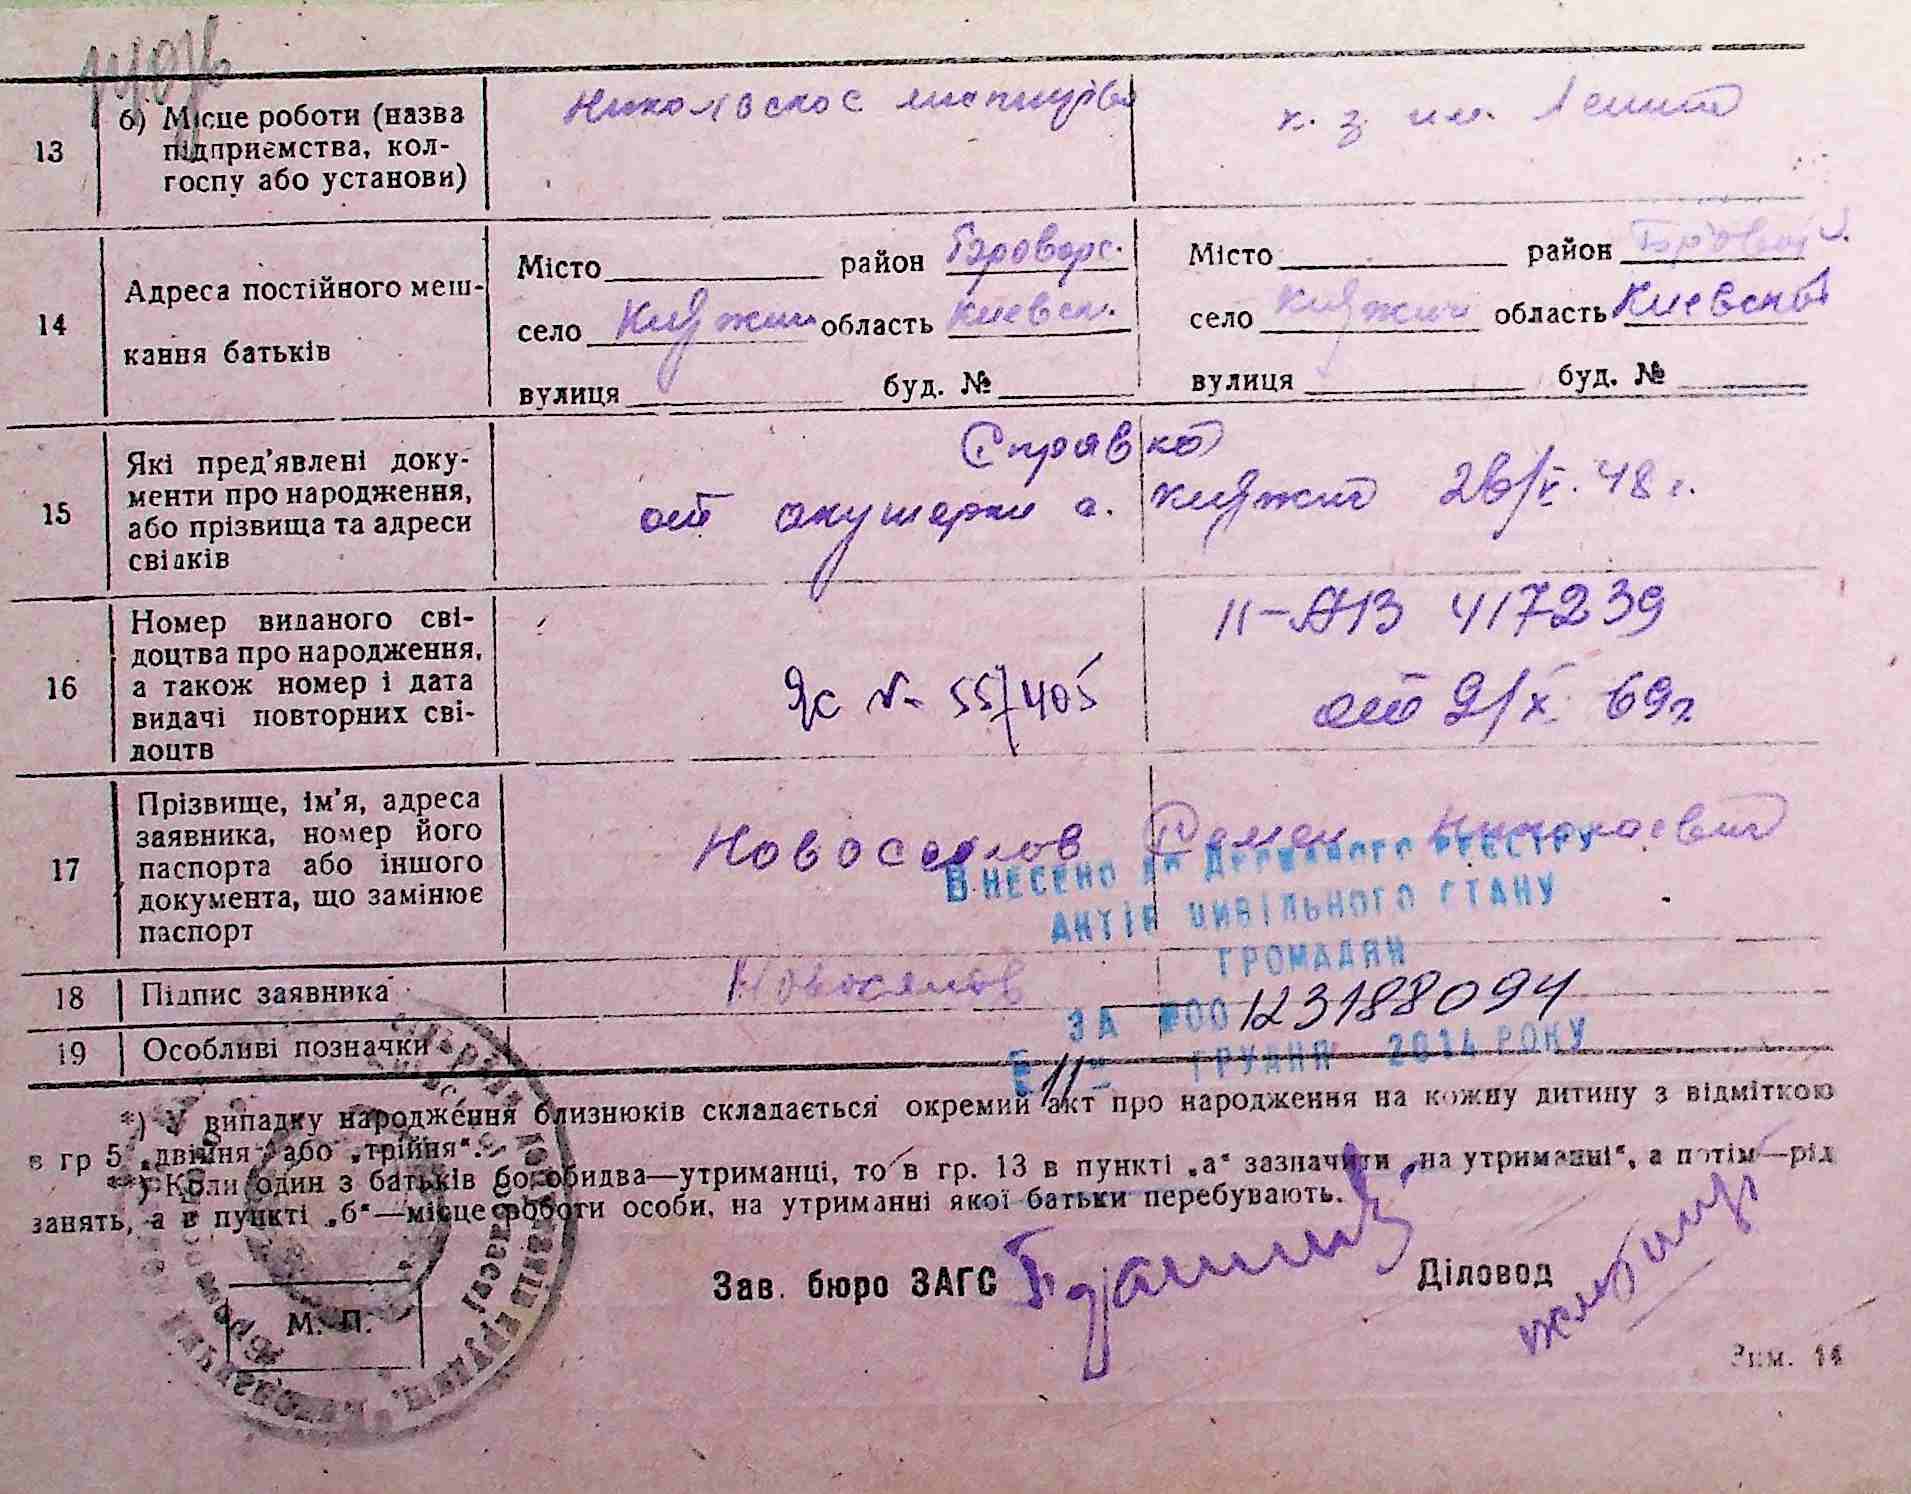 13
б) Місце роботи (назва
підприємства, кол-
госпу або установи)
к. з. им. Ленина
14
Адреса постійного меш-
кання батьків
Місто район Броворс.
село Княжичи область Киевск.
вулиця буд. №
Місто район
село Княжичи область Киевской
вулиця буд. №
15
Які пред'явлені доку-
менти про народження,
або прізвища та адреси
свідків
Справка
от акушерки с. Княжичи 26/V. 48 г.
16
Номер виданого сві-
доцтва про народження,
а також номер і дата
видачі повторних сві-
доцтв
ЯС № 557405
II-АЗ 417239
от 9/X 69г
17
Прізвище, ім'я, адреса
заявника, номер його
паспорта або іншого
документа, що замінює
паспорт
Новоселов Семен Николаевич
ВНЕСЕНО ДО ДЕРЖАВНОГО РЕЄСТРУ
АКТІВ ЦИВІЛЬНОГО СТАНУ
ГРОМАДЯН
ЗА №00123188094
11 ГРУДНЯ 2014 РОКУ
18
Підпис заявника
Новоселов
19
Особливі позначки
*) У випадку народження близнюків складається окремий акт про народження на кожну дитину з відміткою
в гр 5 „двійня“ або „трійня“.
**) Коли один з батьків або обидва—утриманці, то в гр. 13 в пункті „а“ зазначити „на утриманні“, а потім—рід
занять, а в пункті „б“—місце роботи особи, на утриманні якої батьки перебувають.
Зав. бюро ЗАГС
Діловод
М. П.
Зам. 14